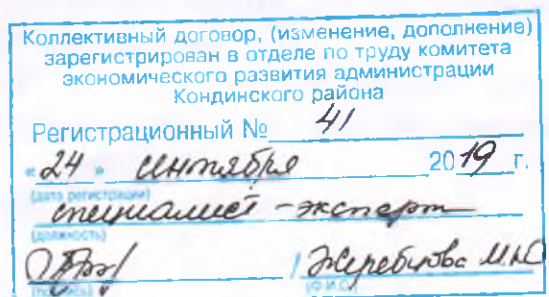 Коллективный договор, (изменение, дополнение)
зарегистрирован в отделе по труду комитета
экономического развития администрации
Кондинского района
Регистрационный № 41
«24» сентября 2019 г.
(дата регистрации)
специалист - эксперт
(должность)
/ Жеребцова
(подпись) (Ф.И.О.)